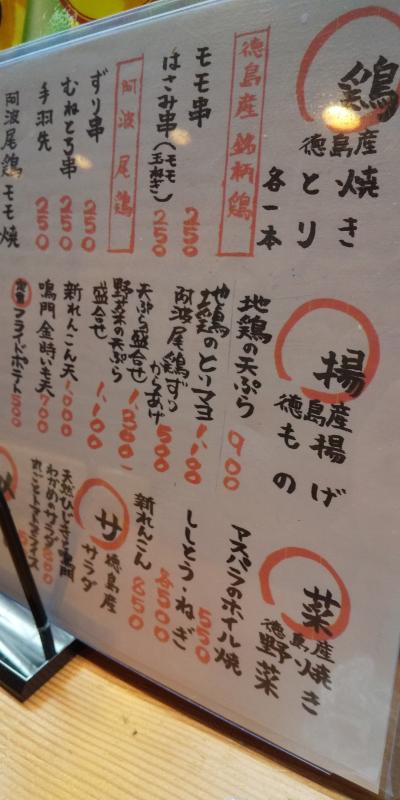 鶏
徳島産
焼きとり
各一本
徳島産銘柄鶏
モモ串 250
はさみ串(モモ玉ねぎ) 250
阿波尾鶏
ずり串 250
むねとろ串 250
手羽先 250
阿波尾鶏モモ焼
揚
徳島産
揚げもの
地鶏の天ぷら 900
地鶏のとりマヨ 1,100
阿波尾鶏ずりからあげ 500
天ぷら盛合せ 1,300
野菜の天ぷら盛合せ 1,100
新れんこん天 1,000
鳴門金時いも天 700
定番 フライドポテト 500
菜
徳島産
焼き野菜
アスパラのホイル焼 550
ししとう・ねぎ 各500
新れんこん 850
サ
徳島産
サラダ
わかめのサラダ
丸ごとトマトスライス